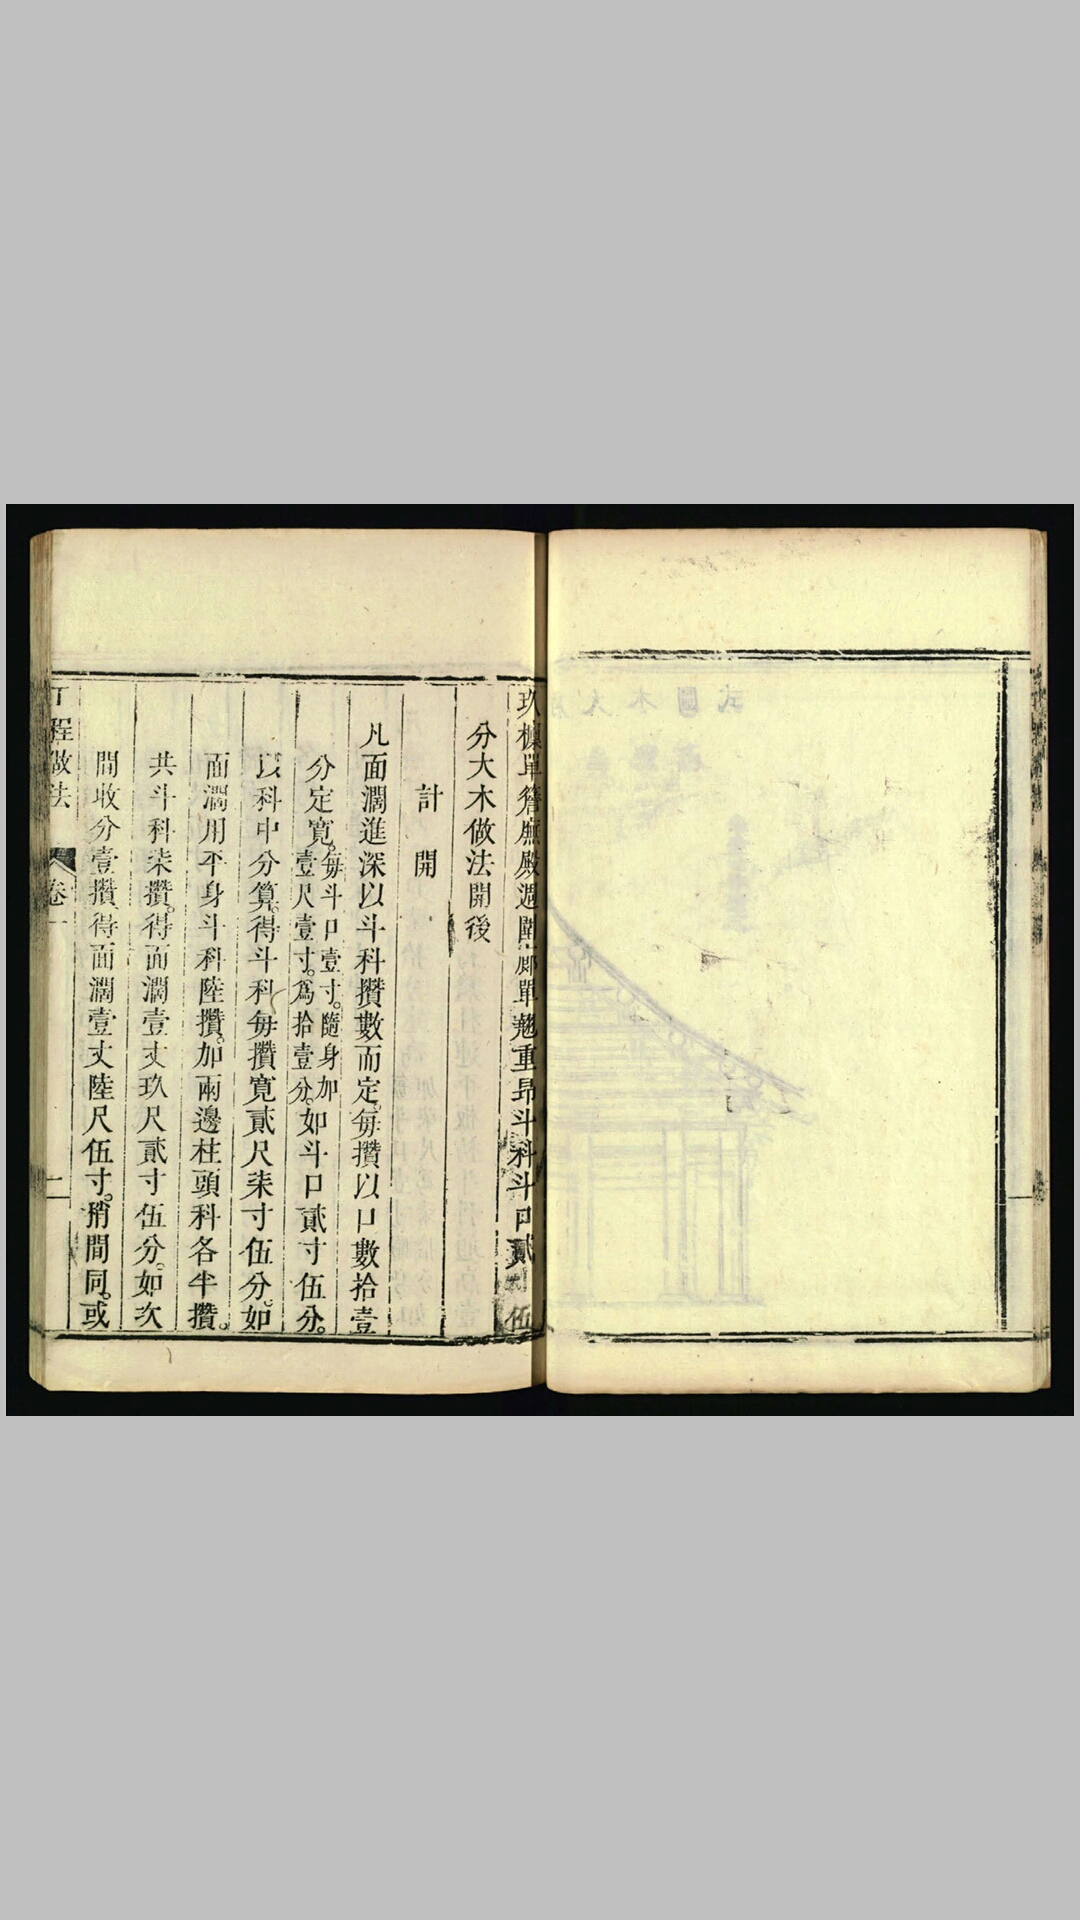 玖檁單簷廡殿週圍廊單翹重昂斗科斗口貳寸伍
分大木做法開後
計開
凡面濶進深以斗科攢數而定。每攢以口數拾壹
分定寬。每斗口壹寸。隨身加壹尺壹寸。爲拾壹分。如斗口貳寸伍分。
以科中分算。得斗科每攢寬貳尺柒寸伍分。如
面濶用平身斗科陸攢。加兩邊柱頭科各半攢。
共斗科柒攢。得面濶壹丈玖尺貳寸伍分。如次
間收分壹攢。得面濶壹丈陸尺伍寸。稍間同。或
工程做法 卷一 二